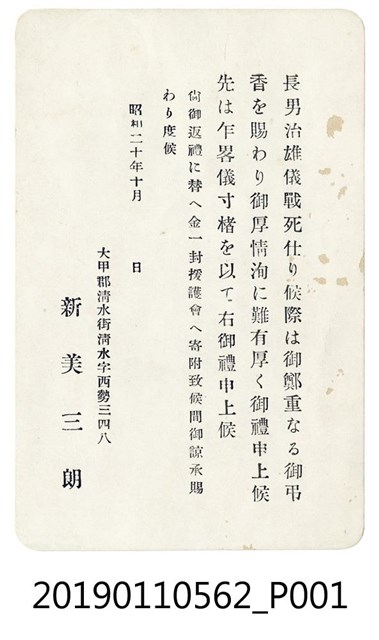 長男治雄儀戰死仕り候際は御鄭重なる御弔
香を賜わり御厚情洵に難有厚く御禮申上候
先は乍畧儀寸楮を以て右御禮申上候
尙御返禮に替へ金一封援護會へ寄附致候間御諒承賜
わり度候
昭和二十年十月　日
大甲郡清水街清水字西勢三四八
新美三朗
20190110562_P001